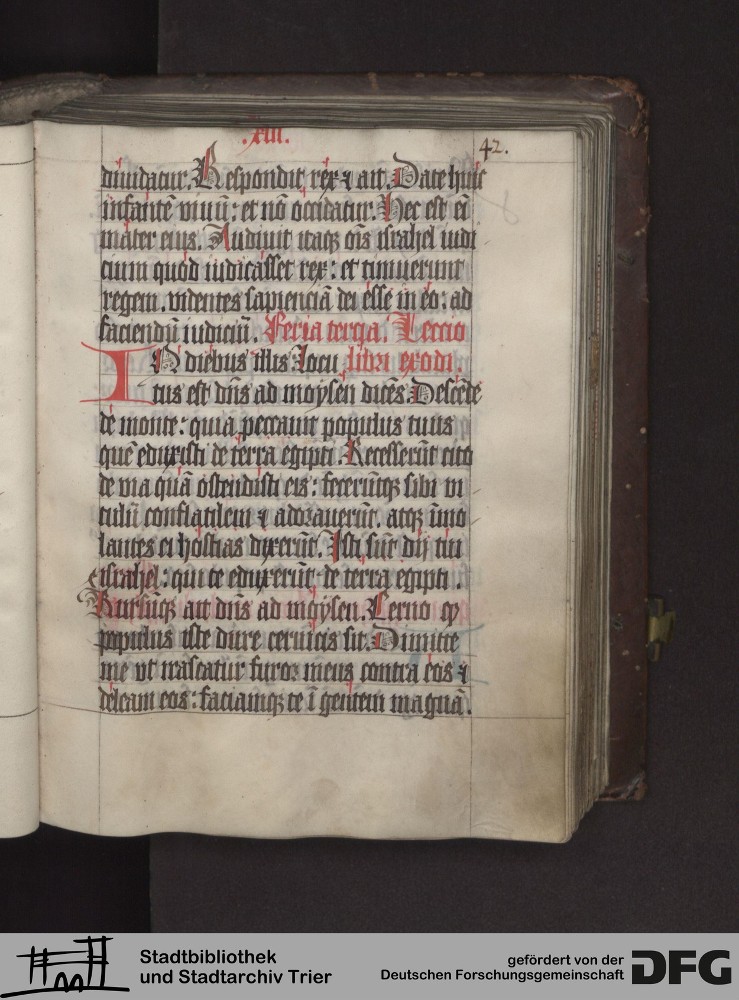 .xiii.
42.
diuidatur. Respondit rex ⁊ ait. Date huic
infantē viuū: et nō occidatur. Hec est eī
mater eius. Audiuit itaqꝫ oīs israhel iudi
cium quod iudicasset rex: et timuerunt
regem. videntes sapienciā dei esse in eo: ad
faciendū iudiciū. Feria tercia. Leccio
IN diebus illis. Locu libri exodi.
tus est dn̄s ad moysen dicēs. Descēde
de monte: quia peccauit populus tuus
quē eduxisti de terra egipti. Recesserūt cito
de via quā ostendisti eis: feceruntqꝫ sibi vi
tulū conflatilem ⁊ adorauerūt. atqꝫ īmo
lantes ei hostias dixerūt. Isti sūt dij tui
israhel: qui te eduxerūt de terra egipti.
Rursūqꝫ ait dn̄s ad moysen. Cerno ꝙ
populus iste dure ceruicis sit. Dimitte
me vt irascatur furor meus contra eos ⁊
deleam eos: faciamqꝫ te ī gentem magnā.
Stadtbibliothek
und Stadtarchiv Trier
gefördert von der
Deutschen Forschungsgemeinschaft
DFG